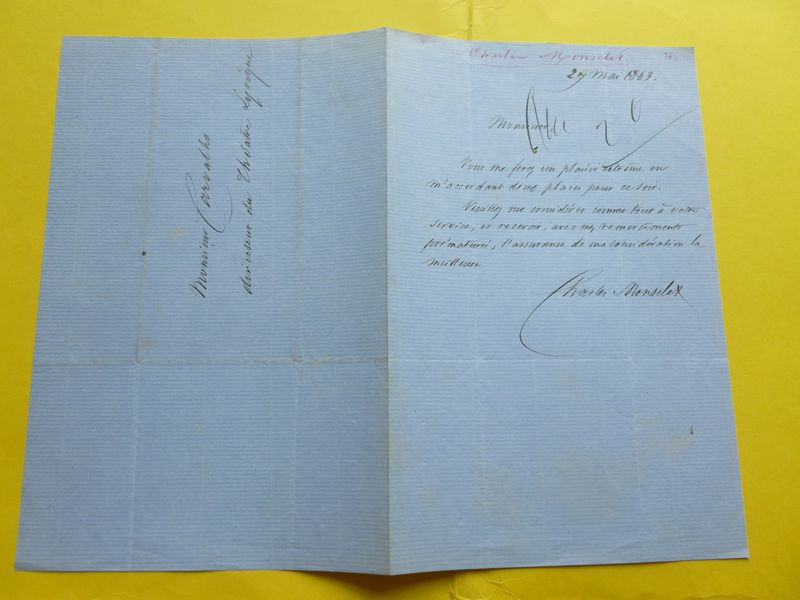 Monsieur Carvalho
directeur du Théâtre Lyrique
Charles Monselet
29 Mai 1863.
Monsieur
Vous me ferez un plaisir extrême en
m'accordant deux places pour ce soir.
Veuillez me considérer comme tout à votre
service, et recevoir, avec mes remerciements
prématurés, l'assurance de ma considération la
meilleure
Charles Monselet